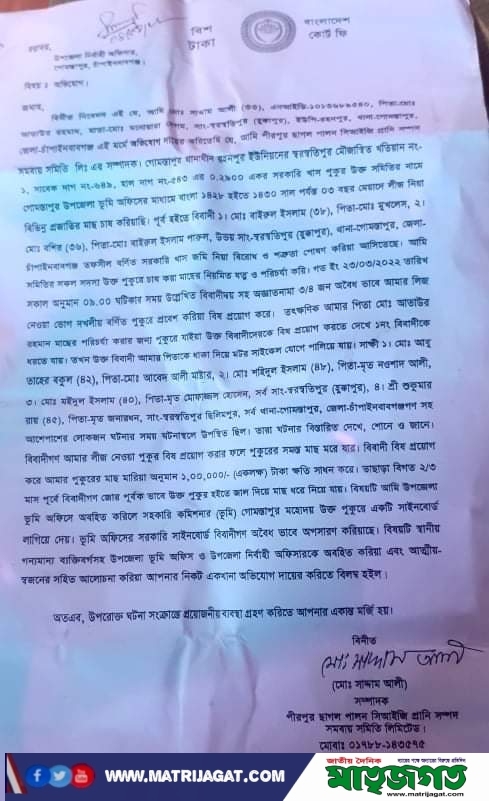 বিশ
টাকা
বাংলাদেশ
কোর্ট ফি
বরাবর,
উপজেলা নির্বাহী অফিসার,
গোমস্তাপুর, চাঁপাইনবাবগঞ্জ।
বিষয় : অভিযোগ।
জনাব,
বিনীত নিবেদন এই যে, আমি মোঃ সাদ্দাম আলী (৩৩), এনআইডি-১০১৩৮৮৯৫৪০, পিতা-মোঃ
আতাউর রহমান, মাতা-মোঃ মনোয়ারা বেগম, সাং-স্বরস্বতিপুর (হুক্কাপুর), ইউপি-রহনপুর, থানা-গোমস্তাপুর,
জেলা-চাঁপাইনবাবগঞ্জ এই মর্মে অভিযোগ দায়ের করিতেছি যে, আমি পীরপুর ছাগল পালন সিআইজি প্রানি সম্পদ
সমবায় সমিতি লিঃ এর সম্পাদক। গোমস্তাপুর থানাধীন রহনপুর ইউনিয়নের স্বরস্বতিপুর মৌজাস্থিত খতিয়ান নং-
১, সাবেক দাগ নং-৬৪৯, হাল দাগ নং-৫৪৩ এর ০.২৯০০ একর সরকারি খাস পুকুর উক্ত সমিতির নামে
গোমস্তাপুর উপজেলা ভূমি অফিসের মাধ্যমে বাংলা ১৪২৮ হইতে ১৪৩০ সাল পর্যন্ত ০৩ বছর মেয়াদে লীজ নিয়া
বিভিন্ন প্রজাতির মাছ চাষ করিয়াছি। পূর্ব হইতে বিবাদী ১। মোঃ বাইরুল ইসলাম (৩৮), পিতা-মোঃ মুখলেস, ২।
মোঃ বশির (৩৬), পিতা-মোঃ বাইরুল ইসলাম পারুল, উভয় সাং-স্বরস্বতিপুর (হুক্কাপুর), থানা-গোমস্তাপুর, জেলা-
চাঁপাইনবাবগঞ্জ তফসীল বর্ণিত সরকারি খাস জমি নিয়া বিরোধ ও শত্রুতা পোষণ করিয়া আসিতেছে। আমি
সমিতির সকল সদস্য উক্ত পুকুরে চাষ করা মাছের নিয়মিত যত্ন ও পরিচর্যা করি। গত ইং ২৩/০৩/২০২২ তারিখ
সকাল অনুমান ০৯.০০ ঘটিকার সময় উল্লেখিত বিবাদীদ্বয় সহ অজ্ঞাতনামা ৩/৪ জন অবৈধ ভাবে আমার লিজ
নেওয়া ভোগ দখলীয় বর্ণিত পুকুরে প্রবেশ করিয়া বিষ প্রয়োগ করে। তৎক্ষণিক আমার পিতা মোঃ আতাউর
রহমান মাছের পরিচর্যা করার জন্য পুকুরে যাইয়া উক্ত বিবাদীদেরকে বিষ প্রয়োগ করতে দেখে ১নং বিবাদীকে
ধরতে যায়। তখন উক্ত বিবাদী আমার পিতাকে ধাক্কা দিয়ে মটর সাইকেল যোগে পালিয়ে যায়। সাক্ষী ১। মোঃ আবু
তাহের বকুল (৪২), পিতা-মোঃ আবেদ আলী মাষ্টার, ২। মোঃ শহিদুল ইসলাম (৪৮), পিতা-মৃত নওশাদ আলী,
৩। মোঃ মইদুল ইসলাম (৪০), পিতা-মৃত মোফাজ্জল হোসেন, সর্ব সাং-স্বরস্বতিপুর (হুক্কাপুর), ৪। শ্রী শুকুমার
রায় (৪৫), পিতা-মৃত জনারধন, সাং-স্বরস্বতিপুর ছিলিমপুর, সর্ব থানা-গোমস্তাপুর, জেলা-চাঁপাইনবাবগঞ্জগণ সহ
আশেপাশের লোকজন ঘটনার সময় ঘটনাস্থলে উপস্থিত ছিল। তারা ঘটনার বিস্তারিত দেখে, শোনে ও জানে।
বিবাদীগণ আমার লীজ নেওয়া পুকুর বিষ প্রয়োগ করার ফলে পুকুরের সমস্ত মাছ মরে যায়। বিবাদী বিষ প্রয়োগ
করে আমার পুকুরের মাছ মারিয়া অনুমান ১,০০,০০০/- (একলক্ষ) টাকা ক্ষতি সাধন করে। তাছাড়া বিগত ২/৩
মাস পূর্বে বিবাদীগণ জোর পূর্বক ভাবে উক্ত পুকুর হইতে জাল দিয়ে মাছ ধরে নিয়ে যায়। বিষয়টি আমি উপজেলা
ভূমি অফিসে অবহিত করিলে সহকারি কমিশনার (ভূমি) গোমস্তাপুর মহোদয় উক্ত পুকুরে একটি সাইনবোর্ড
লাগিয়ে দেয়। ভূমি অফিসের সরকারি সাইনবোর্ড বিবাদীগণ অবৈধ ভাবে অপসারণ করিয়াছে। বিষয়টি স্থানীয়
গন্যমান্য ব্যক্তিবর্গসহ উপজেলা ভূমি অফিস ও উপজেলা নির্বাহী অফিসারকে অবহিত করিয়া এবং আত্মীয়-
স্বজনের সহিত আলোচনা করিয়া আপনার নিকট একখানা অভিযোগ দায়ের করিতে বিলম্ব হইল।
অতএব, উপরোক্ত ঘটনা সংক্রান্তে প্রয়োজনীয় ব্যবস্থা গ্রহণ করিতে আপনার একান্ত মর্জি হয়।
বিনীত
মোঃ সাদ্দাম আলী
(মোঃ সাদ্দাম আলী)
সম্পাদক
পীরপুর ছাগল পালন সিআইজি প্রানি সম্পদ
সমবায় সমিতি লিমিটেড।
মোবাঃ ০১৭৮৮-১৪৩৫৭৫
WWW.MATRIJAGAT.COM
জাতীয় দৈনিক
মাতৃজগত
www.matrijagat.com